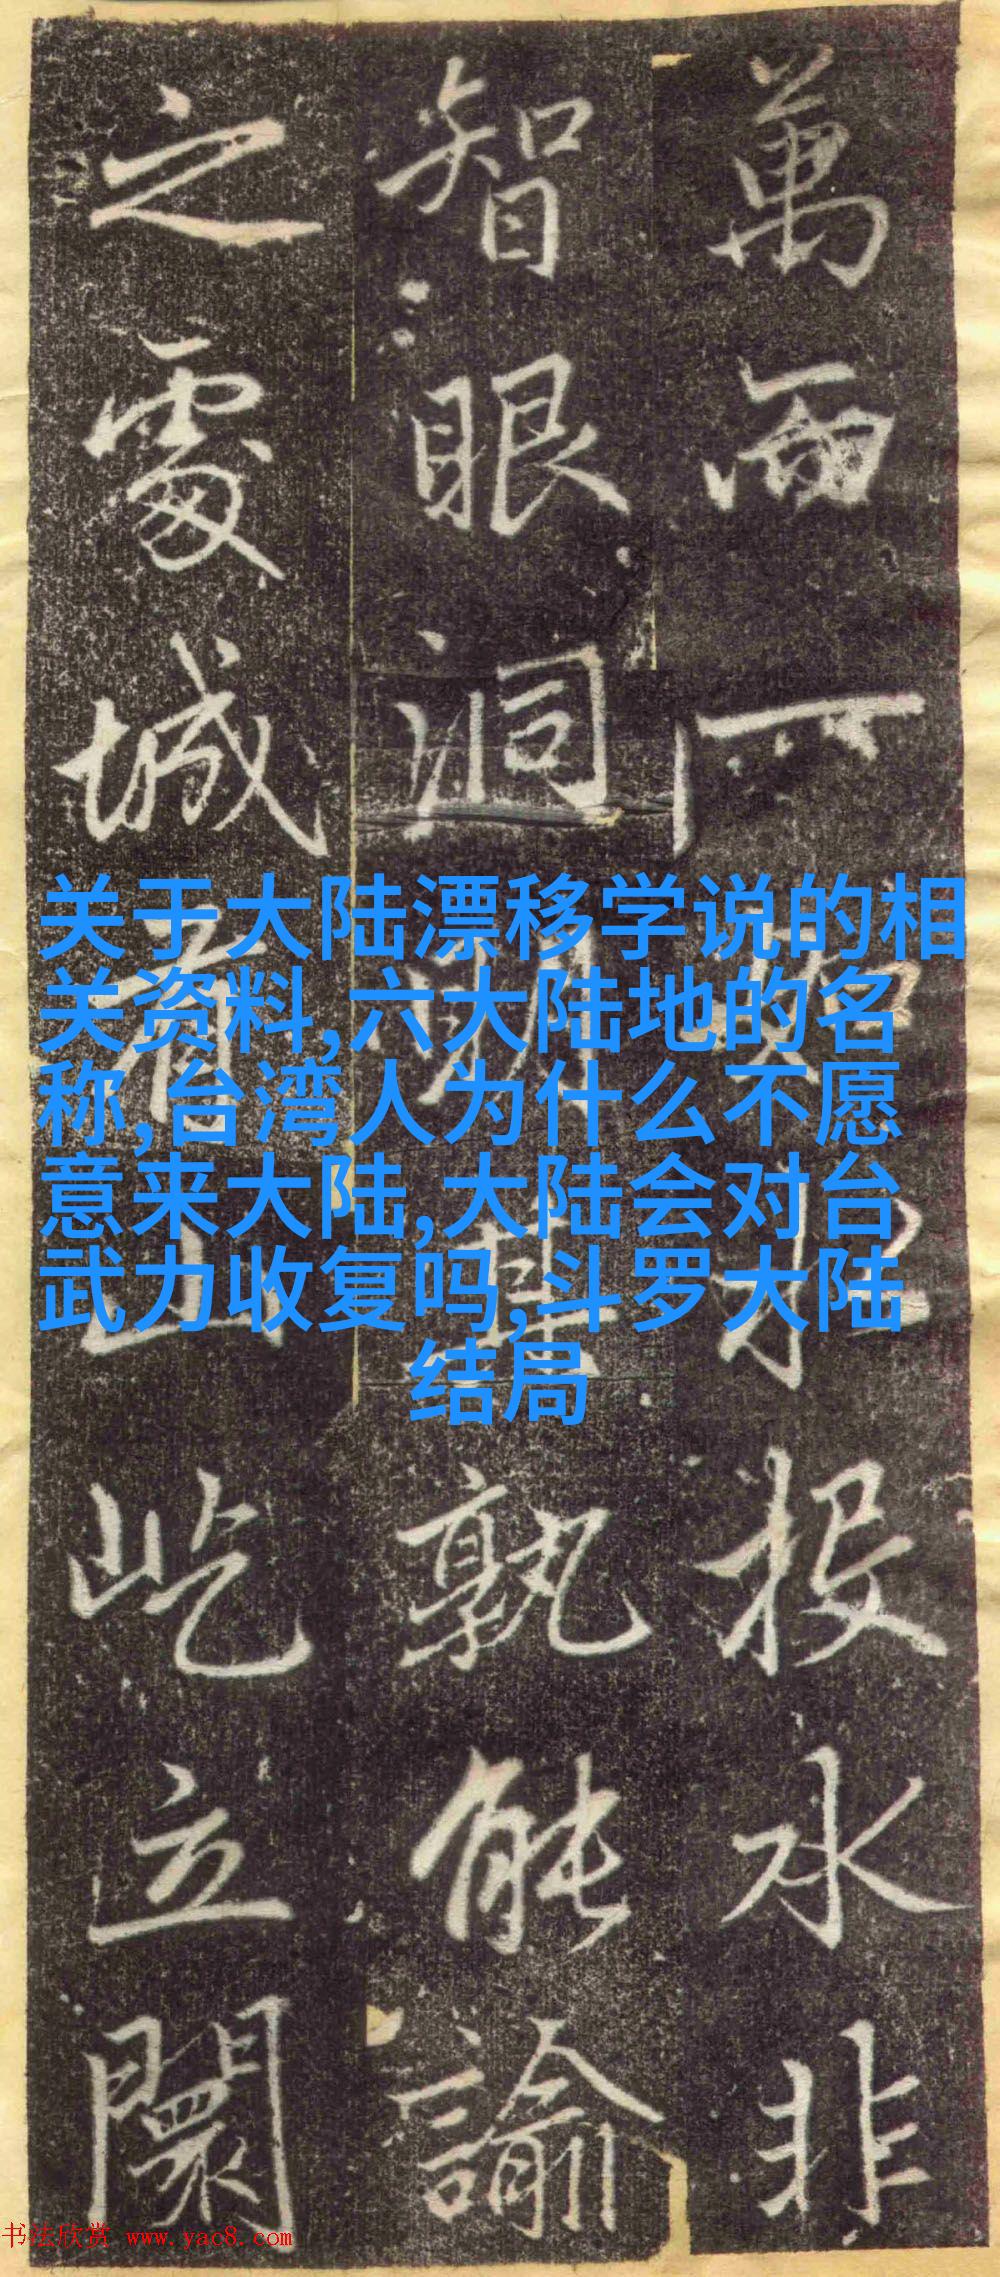 关于大陆漂移学说的相
关资料,六大陆地的名
称,台湾人为什么不愿
意来大陆,大陆会对台
武力收复吗,斗罗大陆
结局
萬而一投水非
智眼洞明其孰能諭
之處城有山屹立闤
书法欣赏 www.yac8.com